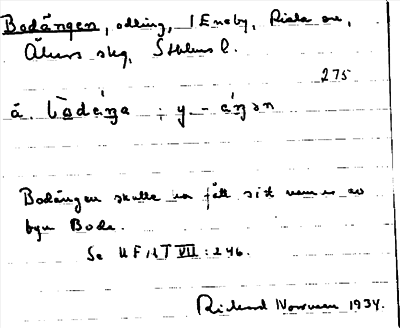 Bodängen, odling, 1 Eneby, Riala sn,
Åkers skg, Sthlms l.
275
å. bodèŋa ; y. - èŋən
Bodängen skulle ha fått sitt namn av
byn Boda.
Se UFT VII : 246.
Rickard 1934.